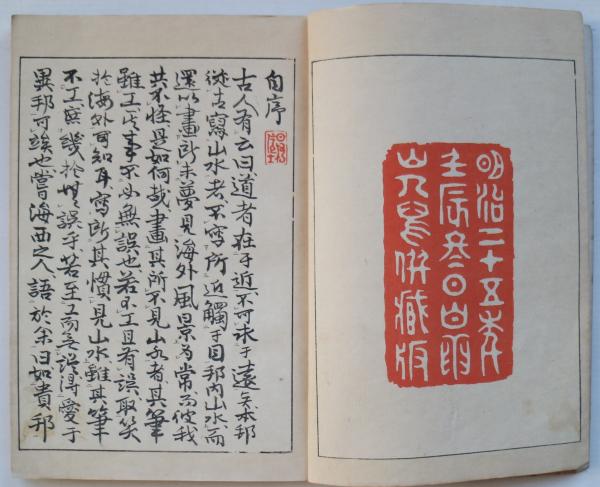 明治二十五季
壬辰日白雨
山人併藏版
自序
古人有云曰道者在于近不可求于遠矣本邦
從古寫山水者不寫所近觸于目邦内山水而
還以畫所未夢見海外風景為常而使我
共不怪是如何哉畫其所不見山水者其筆
雖工其事不必無誤也若不工且有誤取笑
於海外可知耳寫所其慣見山水雖其筆
不工庶幾於無誤于若至工而無誤得愛于
異邦可竢也嘗海西之人語於余曰如貴邦